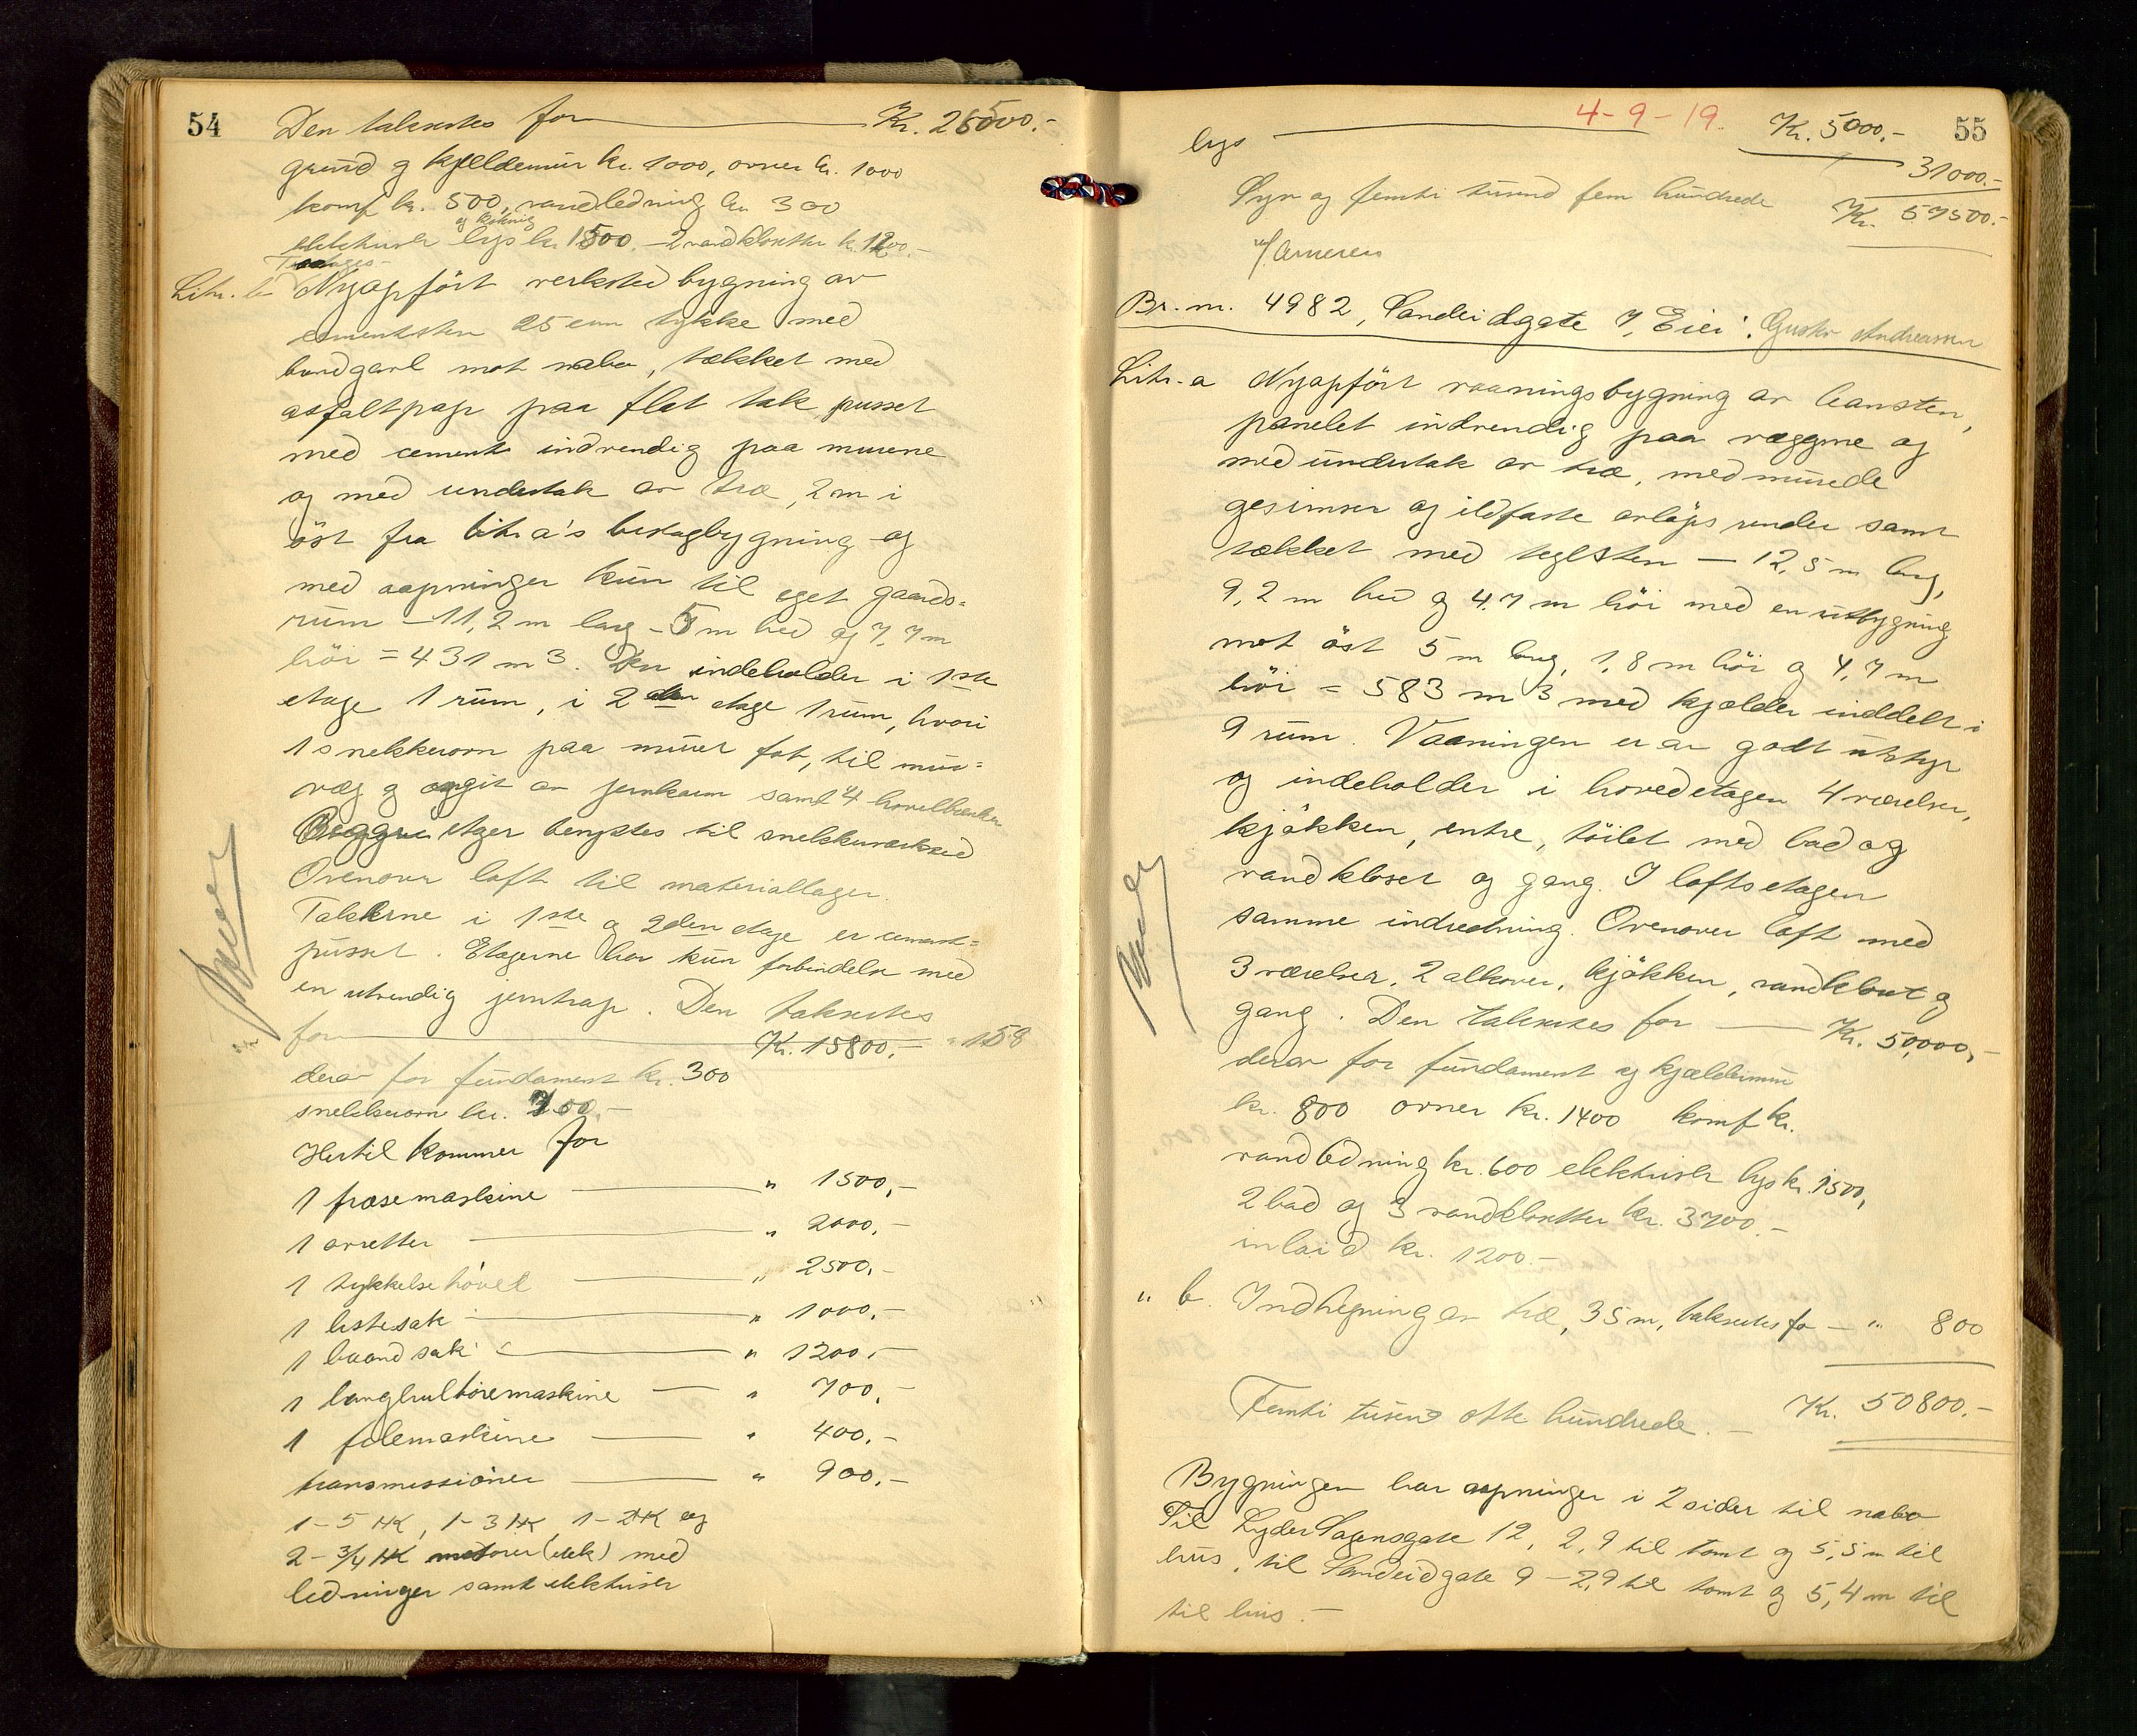 54
Den taksertes for Kr. 26500.-
grund og kjeldemur kr. 1000, ovner kr. 1000
komf kr. 500, vandledning kr 300
og kokning
elektrisk lys kr. 1500.- 2 vandklosetter kr. 1200.-
Litr. b Nyopfört verksted bygning av
cementsten 25 cm tykke med
brandgavl mot nabo, tækket med
asfaltpap paa flat tak pusset
med cement indvendig paa murene
og med undertak av træ, 2 m i
öst fra litr a's beslagbygning og
med aapninger kun til eget gaards=
rum - 11,2 m lang - 5 m bred og 7,7 m
höi = 431 m3. Den indeholder i 1ste
etage 1 rum, i 2den etage 1 rum, hvori
1 snekkerovn paa muret fot, til mur=
væg og omgit av jernkarm samt 4 hövelbænker
Begge etager benyttes til snekkerverksted
Ovenover loft til materiallager.
Takkerne i 1ste og 2den etage er cement=
pusset. Etagerne har kun forbindelse med
en utvendig jerntrap. Den taksertes
for Kr. 15800,- " 158
derav for fundament kr. 300
snekkerovn kr. 300.-
Hertil kommer for
1 fræsemaskine " 1500,-
1 avretter " 2000,-
1 tykkelse hövel " 2500,-
1 listesak " 1000,-
1 baand sak " 1200,-
1 langhulboremaskine " 700,-
1 filemaskine " 400,-
transmissioner " 900,-
1 - 5 HK, 1 - 3 HK, 1 - 2 HK og
2 - 3/4 HK motorer (elek) med
ledninger samt elektrisk
4-9-19.
55
lys Kr. 5000.-
31000.-
Syv og femti tusind fem hundrede Kr. 57500.-
Br. nr. 4982, Sandeidgate 7, Eier: Gustav Andreassen
Litr. a Nyopfört vaaningsbygning av leansten,
panelet indvendig paa væggene og
med undertak av træ, med murede
gesimser og ildfaste avlöps render samt
tækket med teglsten - 12,5 m lang,
9,2 m bred og 4,7 m höi med en utbygning
mot öst 5 m lang, 1,8 m höi og 4,7 m
höi = 583 m 3 med kjælder inddelt i
9 rum. Vaaningen er av godt utstyr
og indeholder i hovedetagen 4 værelser,
kjökken, entre, töilet med bad og
vandkloset og gang. I loftsetagen
samme indredning. Ovenover loft med
3 værelser, 2 alkover, kjökken, vandkloset og
gang. Den taksertes for Kr. 50,000,-
derav for fundament og kjældermur
kr. 800 ovner kr. 1400 komf kr.
vandledning kr. 600 elektrisk lys kr. 1500,
2 bad og 3 vandklosetter kr. 3700.-
inlaid kr. 1200.-
" b. Indhegning av træ, 35 m, taksertes for - " 800
Femti tusend otte hundrede. - Kr. 50800.-
Bygningen har aapninger i 2 sider til nabo
Til Lyder Sagensgate 12, 2,9 til tomt og 5,5 m til
hus, til Sandeidgate 9 - 2,9 til tomt og 5,4 m til
til hus. -